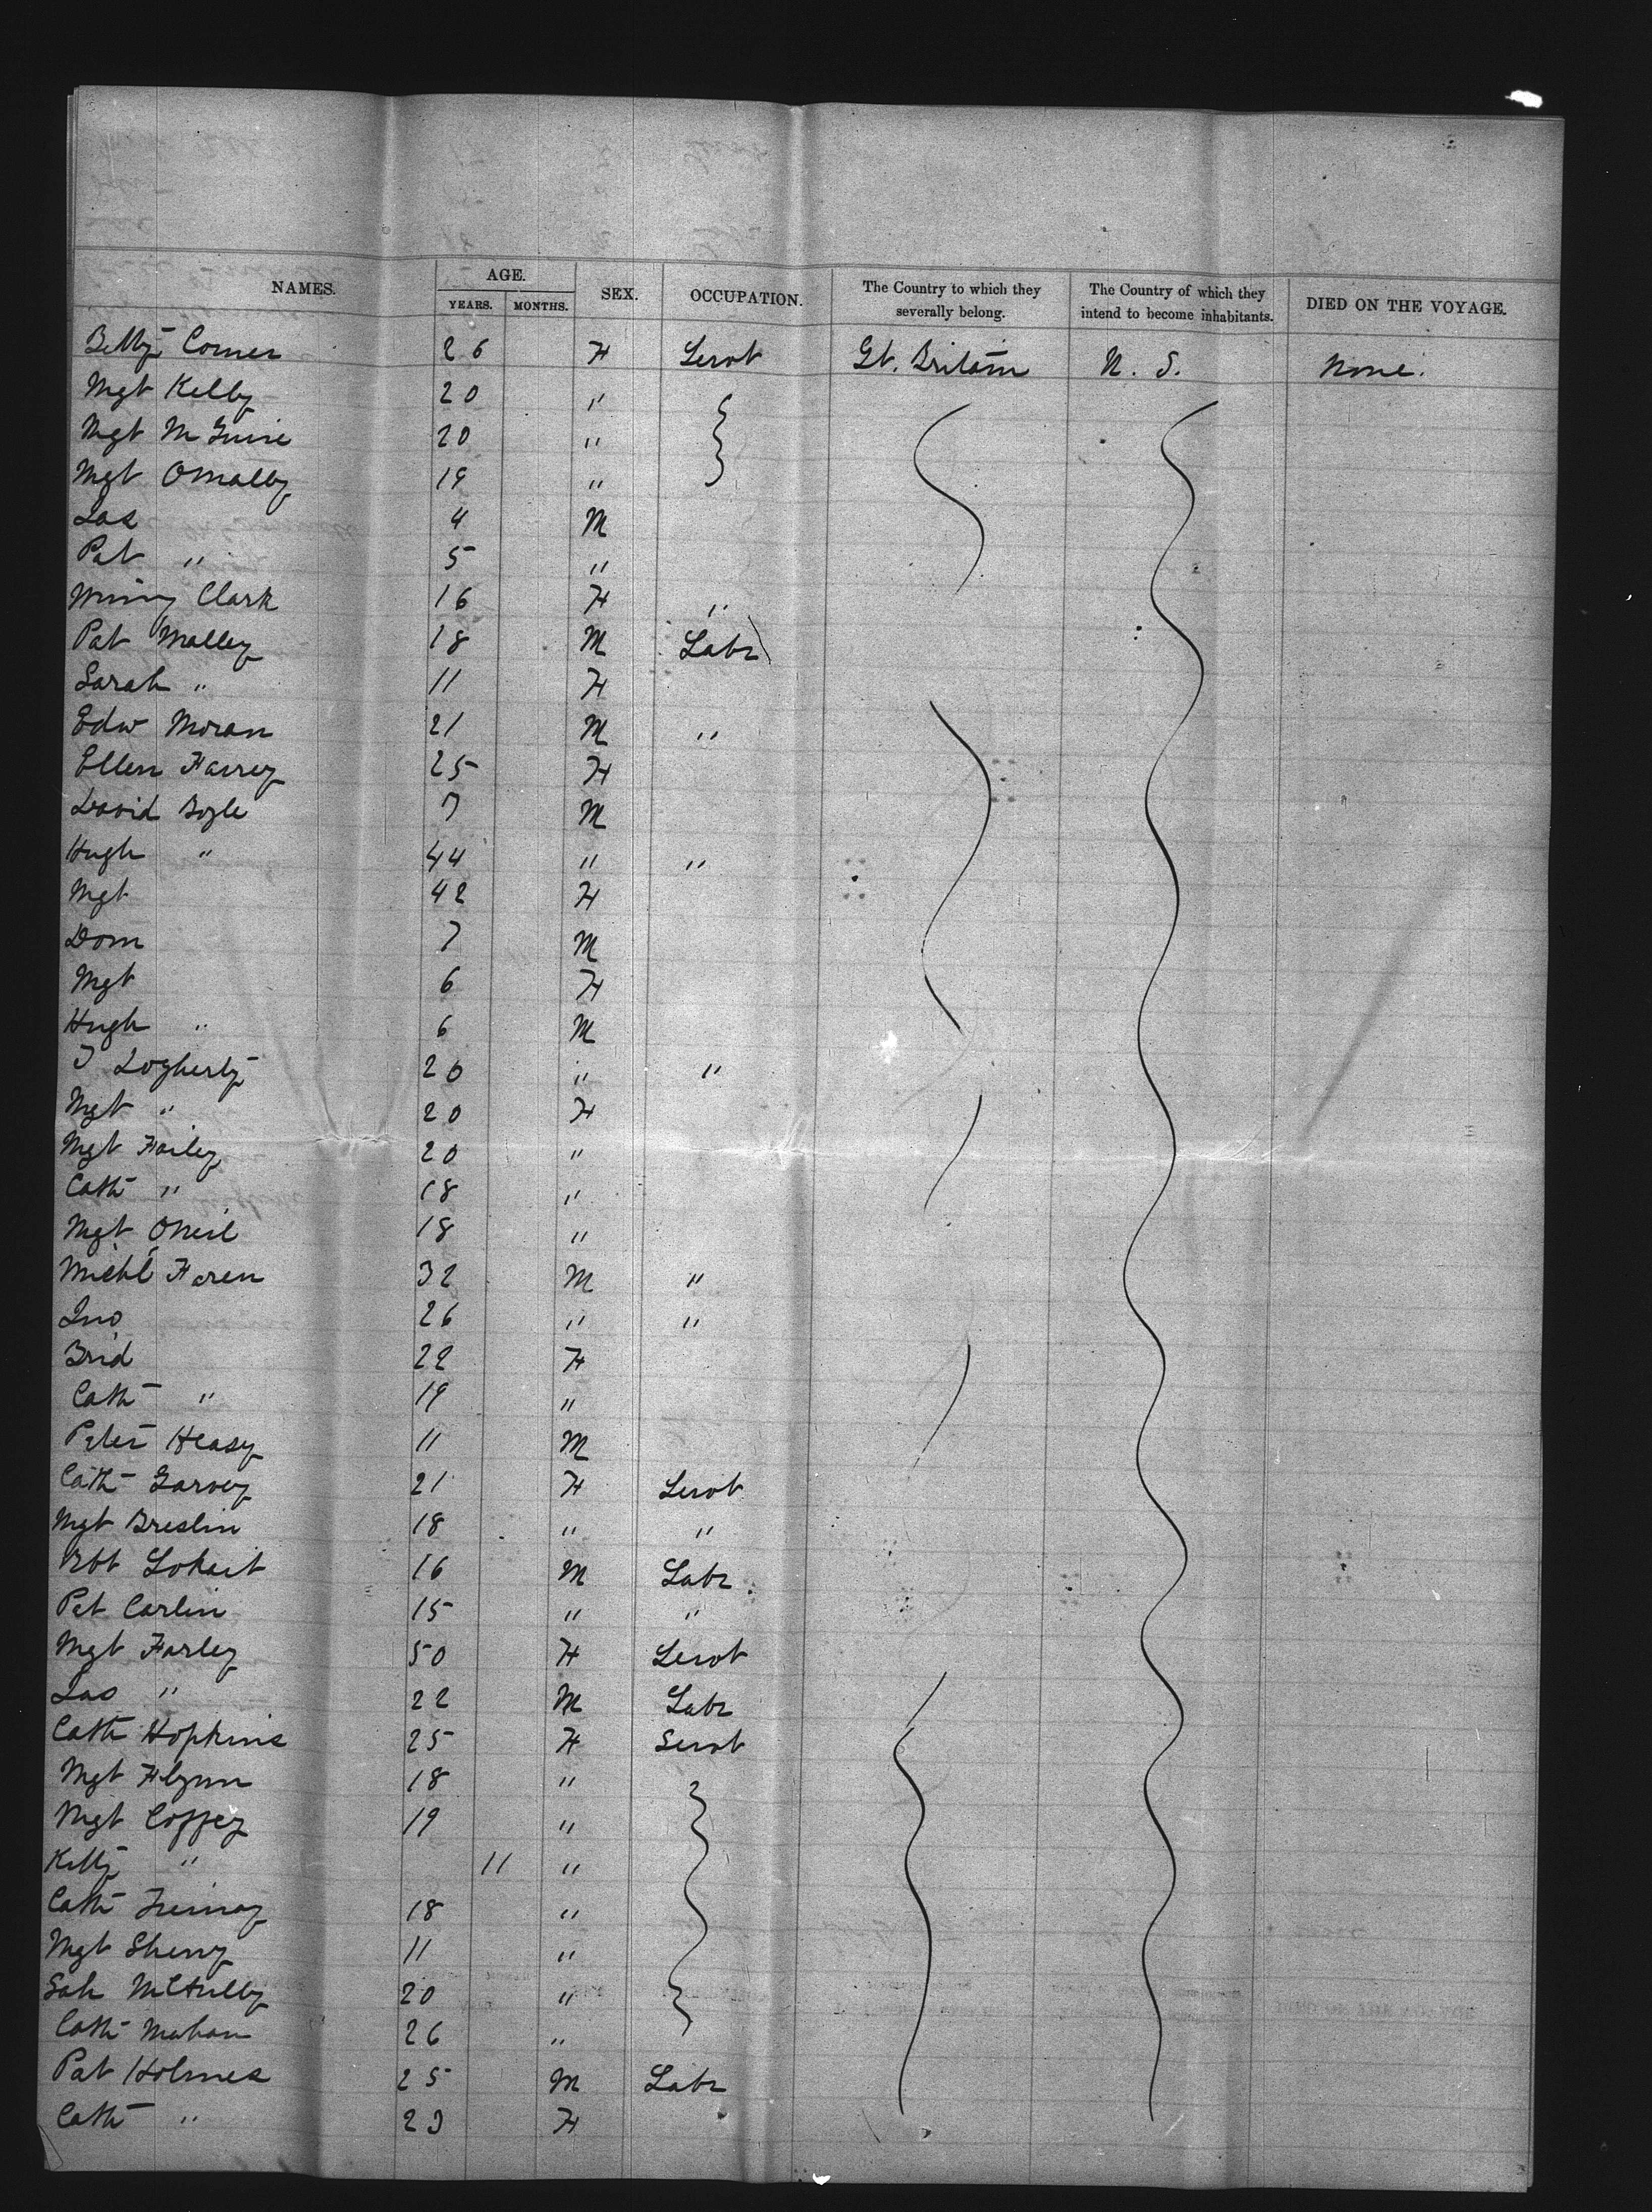 NAMES. AGE. YEARS. MONTHS. SEX. OCCUPATION. The Country to which they severally belong. The Country of which they intend to become inhabitants. DIED ON THE VOYAGE.
Betty Comer 26 F Servt Gt. Britain U. S. None.
Mgt Kelly 20 "
Mgt McGuire 20 "
Mgt OMally 19 "
Jas 4 M
Pat " 5 "
Winny Clark 16 F "
Pat Malley 18 M Labr
Sarah " 11 F
Edw Moran 21 M "
Ellen Farrey 25 F
David Boyle 7 M
Hugh " 44 " "
Mgt 42 F
Dom 7 M
Mgt 6 F
Hugh " 6 M
J Dogherty 20 " "
Mgt " 20 F
Mgt Farley 20 "
Cath " 18 "
Mgt ONeil 18 "
Michl Faren 32 M "
Jno 26 " "
Brid 22 F
Cath " 19 "
Peter Heasy 11 M
Cath Garvey 21 F Servt
Mgt Breslin 18 " "
Rbt Lokart 16 M Labr
Pat Carlin 15 " "
Mgt Farley 50 F Servt
Jas " 22 M Labr
Cath Hopkins 25 F Servt
Mgt Flynn 18 "
Mgt Coffey 19 "
Kitty " 11 "
Cath 18 "
Mgt Sherry 11 "
Sah 20 "
Cath Mahan 26 "
Pat Holmes 25 M Labr
Cath " 23 F